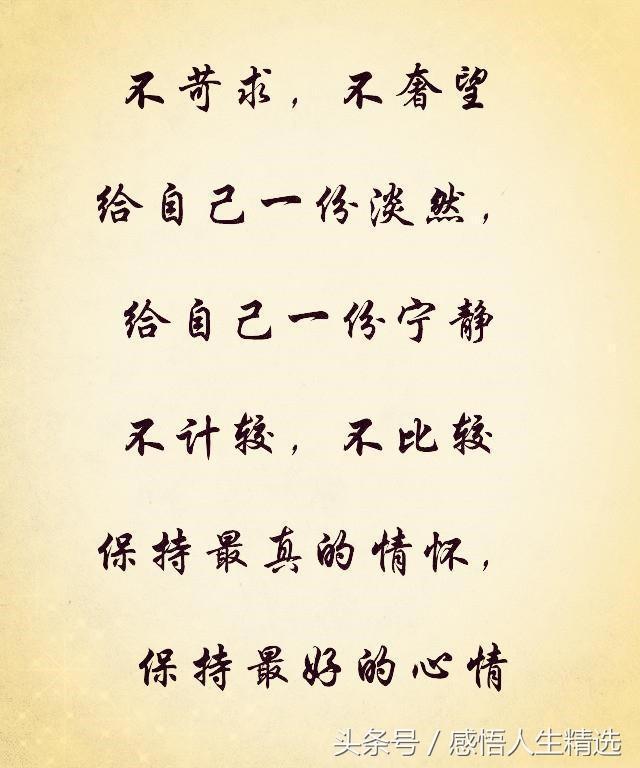 不苛求，不奢望
给自己一份淡然，
给自己一份宁静
不计较，不比较
保持最真的情怀，
保持最好的心情
头条号 / 感悟人生精选